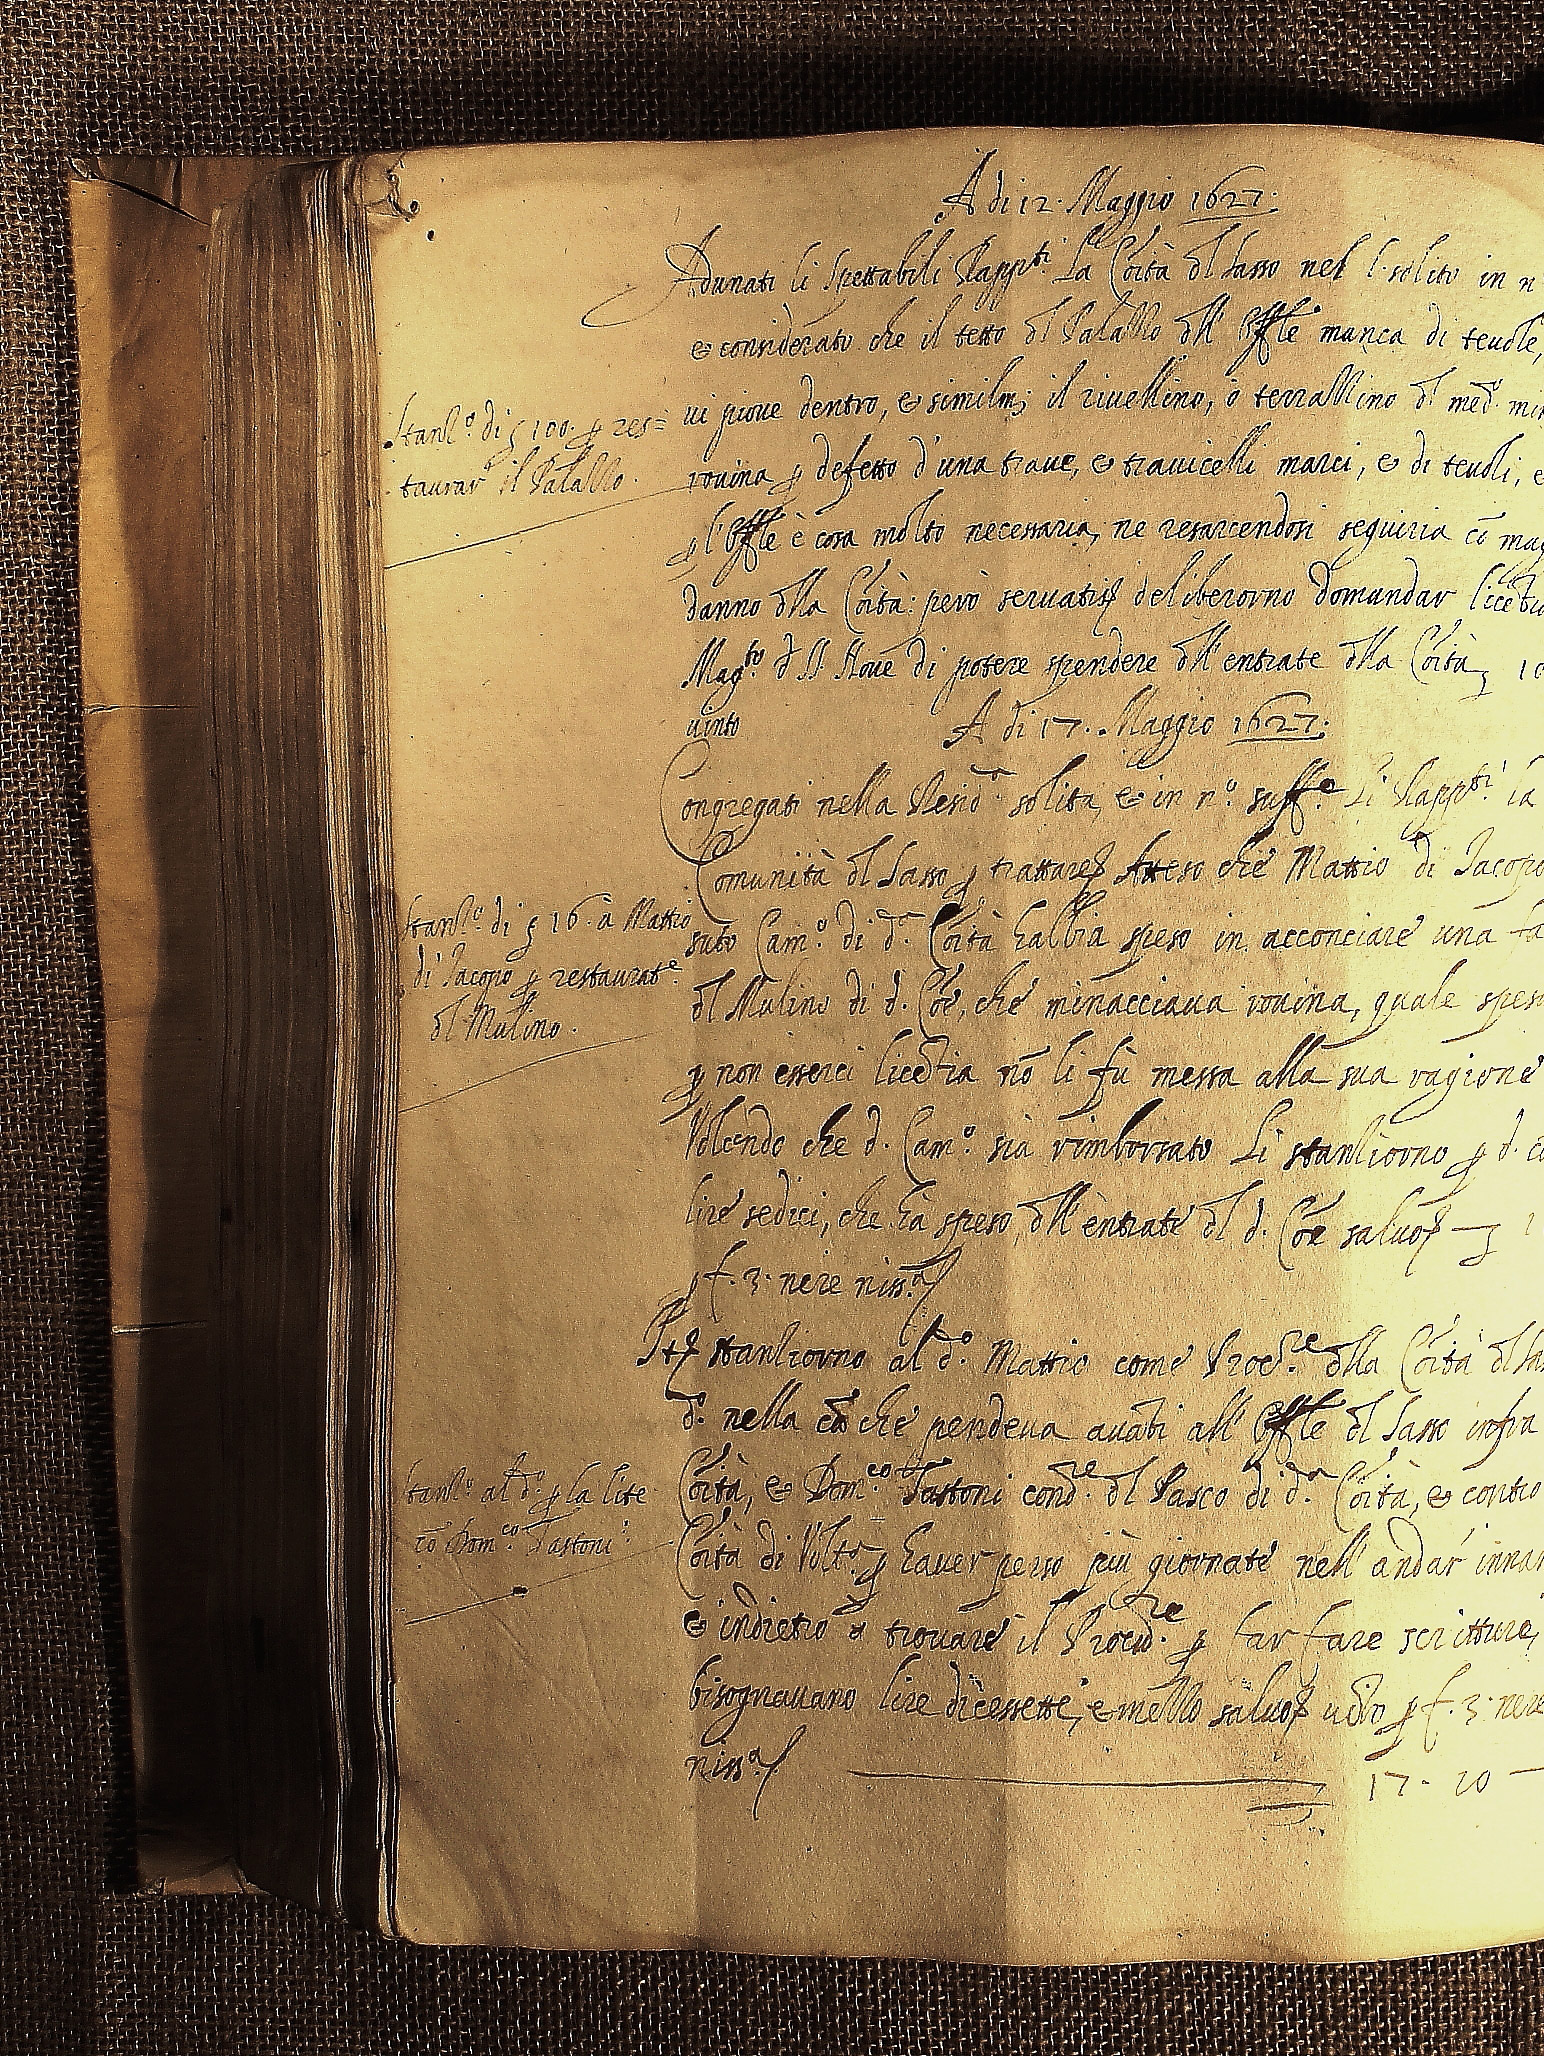 A di 12. Maggio 1627.
Adunati li Spettabili Rapp.ti La Cõità dl Sasso nel l. solito in n
& considerato che il tetto dl Palazzo dll' Offle manca di teuole,
Stanz.o di ʒ 100. ꝑ res=
taurar il Palazzo.
ui pioue dentro, & similm; il riuellino, ò terrazzino dl med.o min
rouina ꝑ defetto d'una traue, & trauicelli marci, & di teuoli, e
ꝑ l'Offle è cosa molto necessaria, ne resarcendosi seguiria cõ mag
danno dlla Cõità: però seruatis deliberorno domandar licẽtia
Mag.to d SS. Noue di potere spendere dll'entrate dlla Cõità ʒ 10
uinto
A di 17. Maggio 1627.
Congregati nella Resid.a solita, & in n.o suff.e Li Rapp.ti la
Comunità dl Sasso ꝑ trattare Atteso che Mattio di Jacopo
Stanz.o di ʒ 16. à Mattio
di Jacopo ꝑ restaurat.e
dl Mulino.
suto Cam.o di d.a Cõità habbia speso in acconciare una fa
dl Mulino di d. Cõe, che minacciaua rouina, quale spesa
ꝑ non esserci licẽtia nõ li fù messa alla sua ragione
Volendo che d. Cam.o sia rimborsato Li stanziorno ꝑ d. co
lire sedici, che hà speso, dll'entrate dl d. Cõe saluo — ʒ 1
ꝑ f. 3. nere niss.a
It stanziorno al d.o Mattio come Proc.re dlla Cõità dl Sas
d.o nella cã che pendeua auãti all' Offle dl Sasso infra
Stanz.o al d.o ꝑ la lite
cõ Dom.co Tastoni
Cõità, & Dom.co Tastoni cond.re dl Pasco di d.a Cõità, & contro
Cõità di Volt.a ꝑ hauer perso più giornate nell'andar innan
& indietro à trouare il Procu.re ꝑ far fare scritture,
bisognauano lire dicessette, e mezzo saluo uĩto ꝑ f. 3. nere
niss.a 17 - 10 -